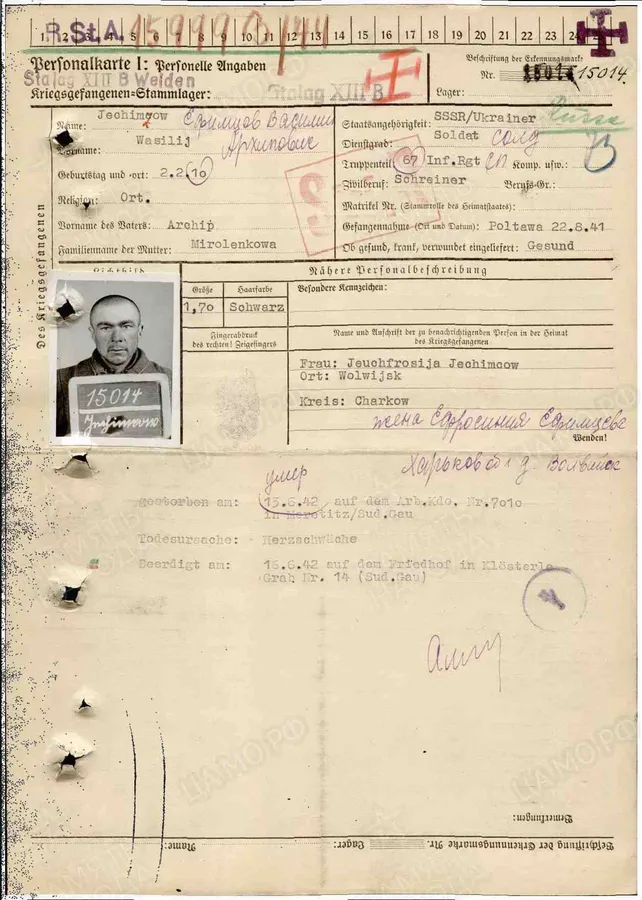 R.St.A. 159990/44
1 2 3 4 5 6 7 8 9 10 11 12 13 14 15 16 17 18 19 20 21 22 23 24
Personalkarte I: Personelle Angaben
Stalag XIII B Weiden
Kriegsgefangenen-Stammlager: Stalag XIII B
Beschriftung der Erkennungsmarke
Nr. 15014 15014.
Lager:
Des Kriegsgefangenen
Name: Jechimcow Ефимцов Василий
Vorname: Wasilij Архипович
Geburtstag und -ort: 2.2.10
Religion: Ort.
Vorname des Vaters: Archip
Familienname der Mutter: Mirolenkowa
Staatsangehörigkeit: SSSR/Ukrainer
Russe
Dienstgrad: Soldat солд
Truppenteil: 67 Inf.Rgt сп Komp. usw.:
Zivilberuf: Schreiner Berufs-Gr.:
Matrikel Nr. (Stammrolle des Heimatstaates):
Gefangennahme (Ort und Datum): Poltawa 22.8.41
Ob gesund, krank, verwundet eingeliefert: Gesund
Lichtbild
Nähere Personalbeschreibung
Größe Haarfarbe Besondere Kennzeichen:
1,70 Schwarz
15014
Fingerabdruck
des rechten! Zeigefingers
Name und Anschrift der zu benachrichtigenden Person in der Heimat
des Kriegsgefangenen
Frau: Jeuchfrosija Jechimcow
Ort: Wolwijsk
Kreis: Charkow
жена Ефросиния Ефимцева
Wenden!
Харьков обл д. Волвийск
умер
gestorben am: 13.6.42 auf dem Arb.Kdo. Nr.7010
in Meretitz/Sud.Gau
Todesursache: Herzschwäche
Beerdigt am: 16.6.42 auf dem Friedhof in Klösterle
Grab Nr. 14 (Sud.Gau)
ЦАМО РФ
Bemerkungen:
Beschriftung der Erkennungsmarke Nr. Lager: Name: